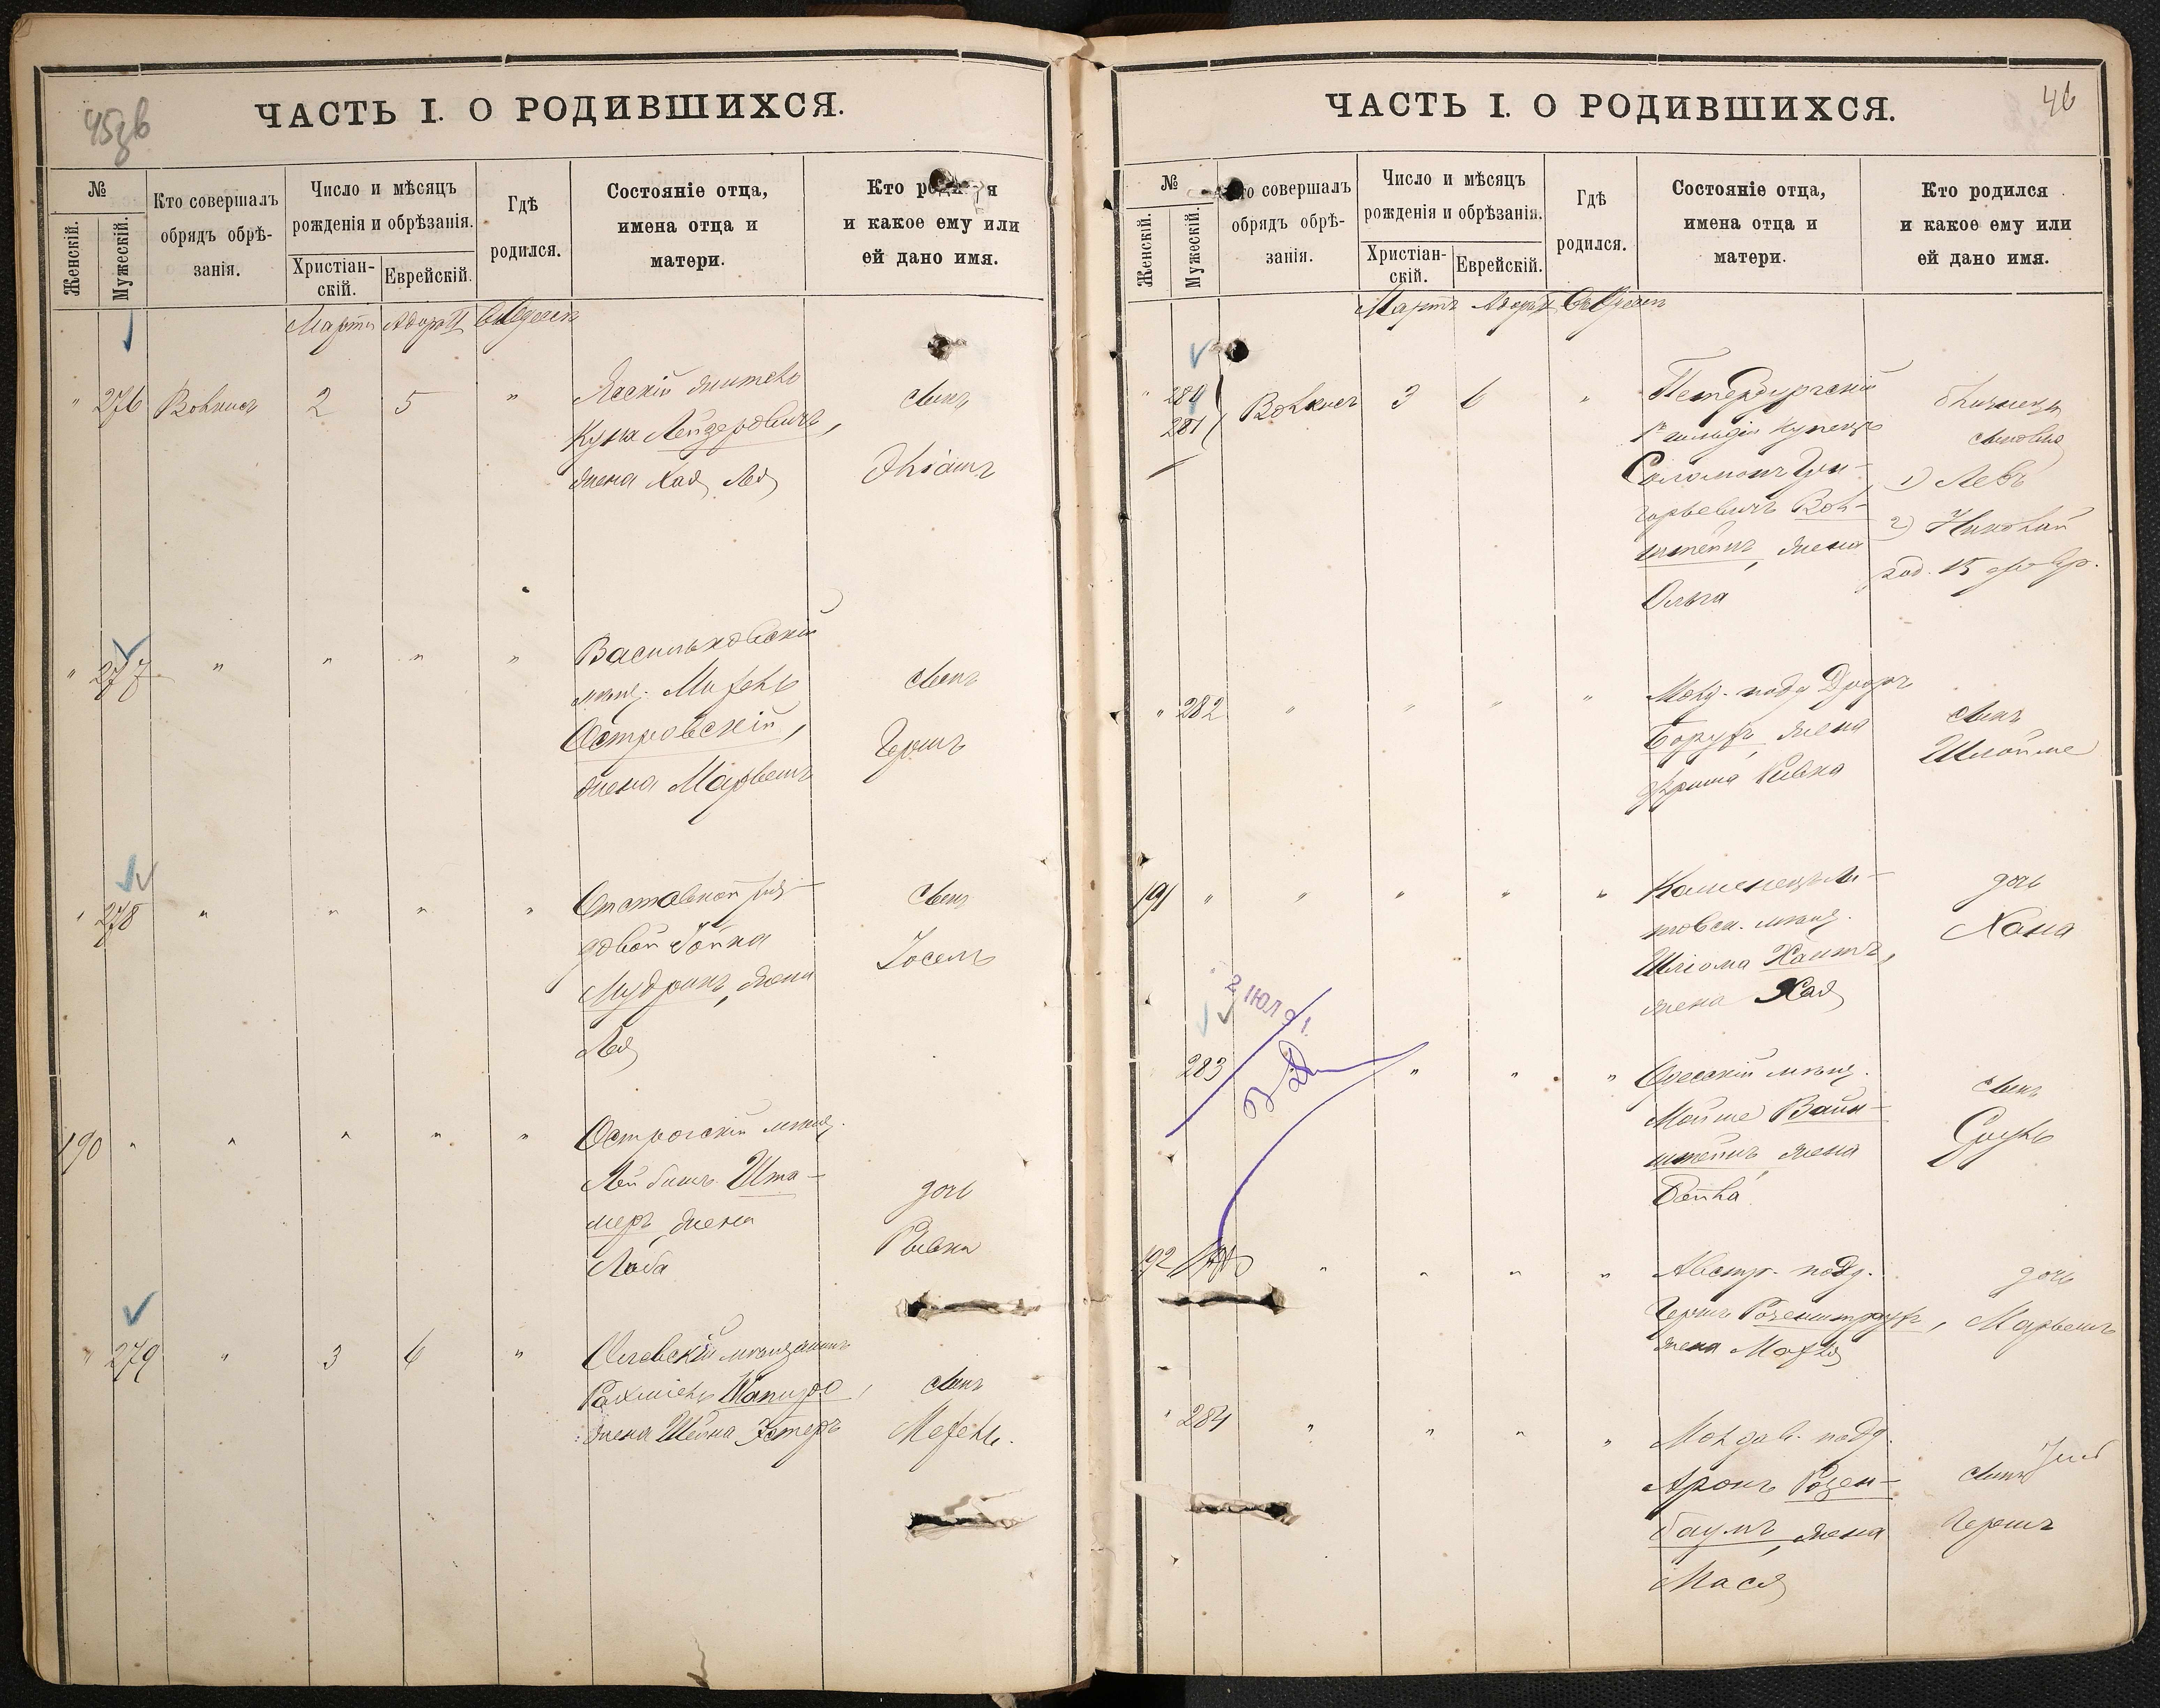 45зв
ЧАСТЬ I. О РОДИВШИХСЯ.
№
Женскій.
Мужескій.
Кто совершалъ
обрядъ обрѣ-
занія.
Число и мѣсяцъ
рожденія и обрѣзанія.
Христіан-
скій.
Еврейскій.
Гдѣ
родился.
Состояніе отца,
имена отца и
матери.
Кто
и какое ему или
ей дано имя.
Мартъ Адоръ II
" 276 2 5 "
Ясскій житель
Лейзеровичъ,
жена Хая Лея
сынъ
Эліашъ
" 277 " " " "
Васильковскій
мѣщ.
Островскій,
жена
сынъ
Гершъ
" 278 " " " "
Отставной ря-
довой
Мудрикъ, жена
Лея
сынъ
Іосель
190 " " " " "
Острогскій мѣщ.
Лейбишъ Шта-
меръ, жена
Лоба
дочь
Ривка
" 279 " 3 6 "
мѣщанинъ
Шапиро,
жена Шейна Эстеръ
сынъ
46
ЧАСТЬ I. О РОДИВШИХСЯ.
№
Женскій.
Мужескій.
совершалъ
обрядъ обрѣ-
занія.
Число и мѣсяцъ
рожденія и обрѣзанія.
Христіан-
скій.
Еврейскій.
Гдѣ
родился.
Состояніе отца,
имена отца и
матери.
Кто родился
и какое ему или
ей дано имя.
Мартъ Адоръ II
" 280
281 3 6 "
Петербургскій
гильдіи купецъ
Соломонъ Гри-
горьевичъ Вол-
штейнъ, жена
Ольга
близнецы
сыновья
1) Левъ
2) Николай
род. 15 февр.
" 282 " " " "
Борухъ, жена
Фрима Ривка
сынъ
Шлойме
191 " " " " "
Каменецъ-Ли-
товск. мѣщ.
Шліома Хаитъ,
жена Хая
дочь
Хана
2 ИЮЛ 91.
283 " " "
Одесскій мѣщ.
Мойше Вайн-
штейнъ, жена
Бейла
сынъ
Сруль
192 " " " "
Австр. подд.
Гершъ Розенштраухъ,
жена
дочь
" 284 " " " "
Молдав. подд.
Аронъ Розен-
баумъ, жена
Мася
сынъ
Гершъ